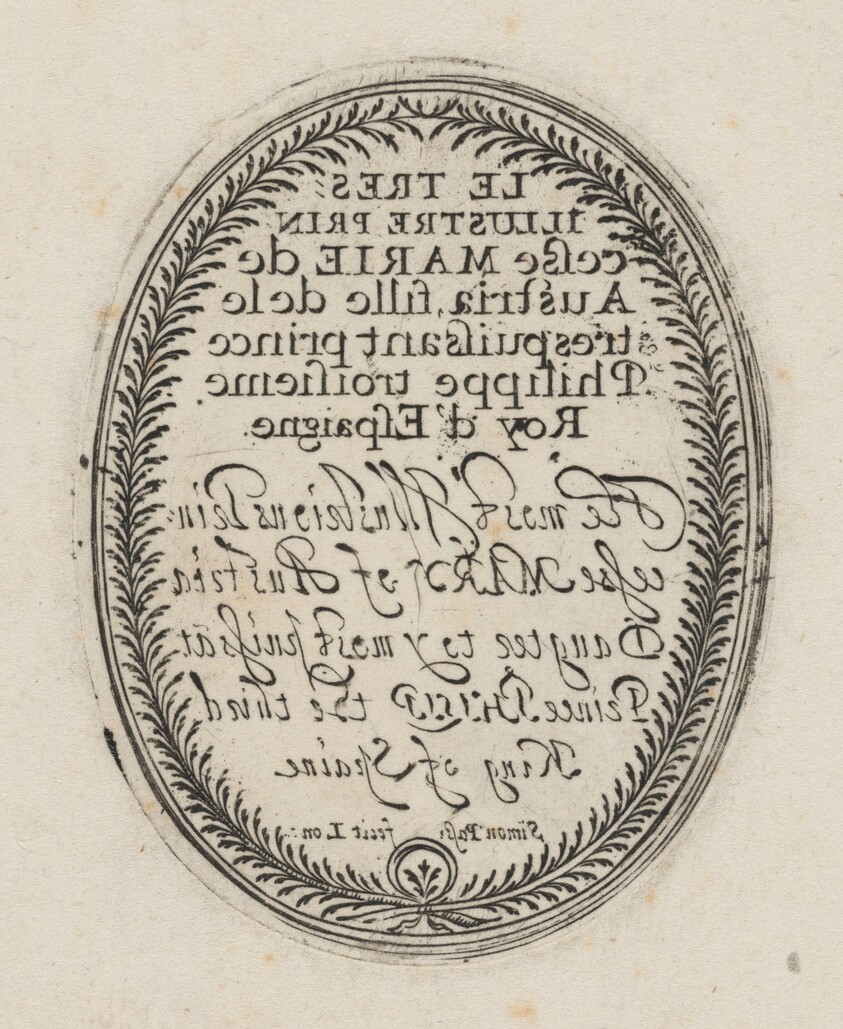 LE TRES-
ILLUSTRE PRIN
ceſse MARIE de
Auſtria, fille de le
trespuiſsant prince
Philippe troiſieme.
Roy d'Eſpaigne.
The most Illustrious Prin-
ceſse MARY of Austria
Daugter to y most puiſsāt
Prince PHILIP the third
King of Spaine
Simon Paſs: fecit Lon: